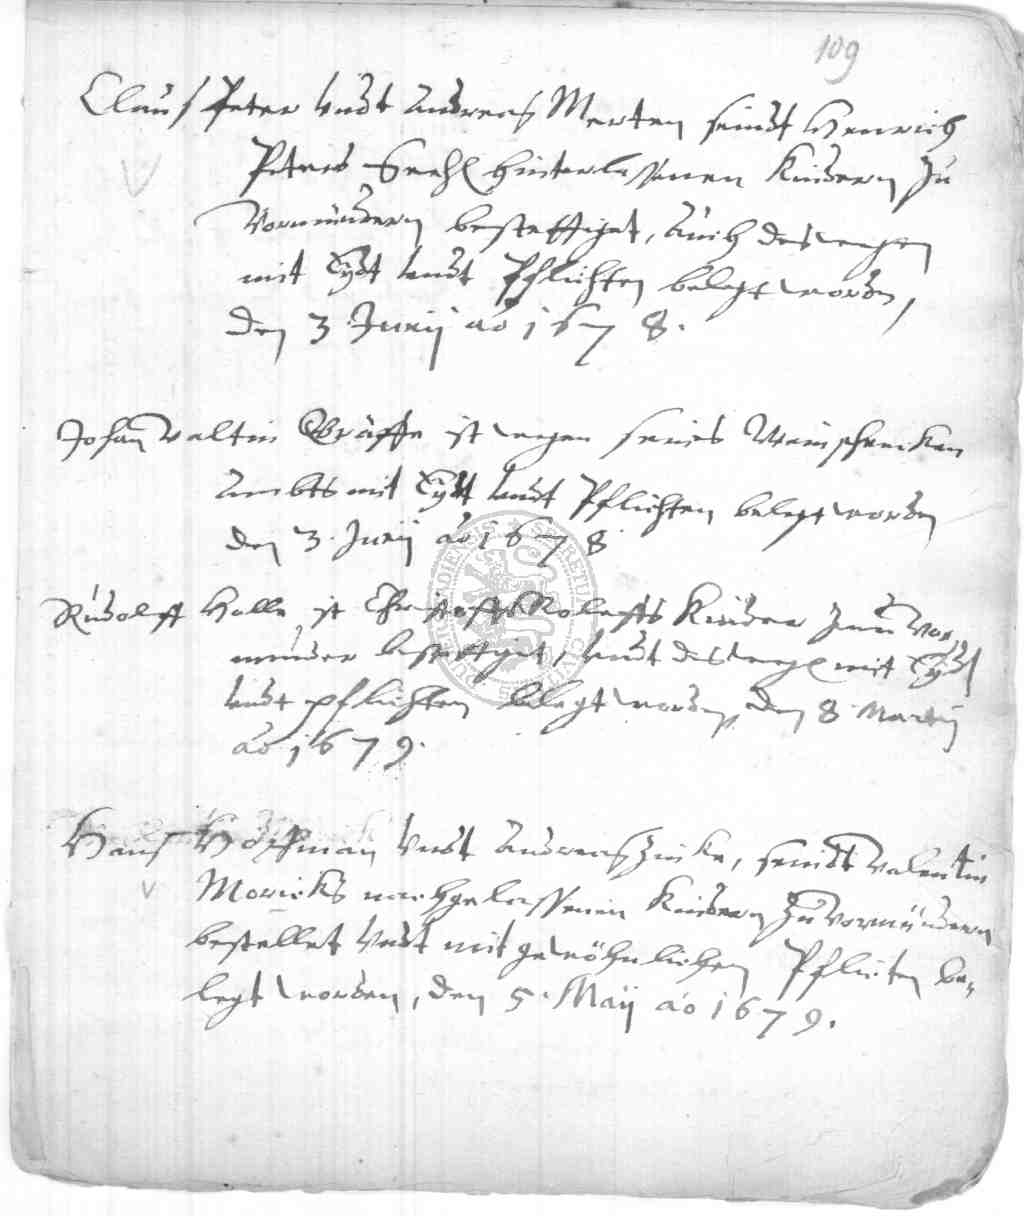 109
Clauß Peter undt Andreas Merten seindt Henrich
Peters Seehl hinterlassenen Kindern zu
Vormündern bestettiget, auch deswegen
mit Eydt undt Pflichten belegt worden,
den 3 Junij aō 1678.
Johan Valtin Gräffe ist wegen seines Weinschencken
Ambts mit Eydt undt Pflichten belegt worden
den 3. Junij aō 1678
Rudolff Halle ist Christoffs Kinder zum Vor,
münder bestettiget, undt deswegen mit Eydt
undt pflichten belegt worden, den 8 Martij
aō 1679.
Hanß Hoffman undt Andreas Zinke, seindt Valentin
Moricks nachgelassenen Kindern zu Vormündern
bestellet undt mit gewöhnlichen Pflichten be,
legt worden, den 5. Maij aō 1679.